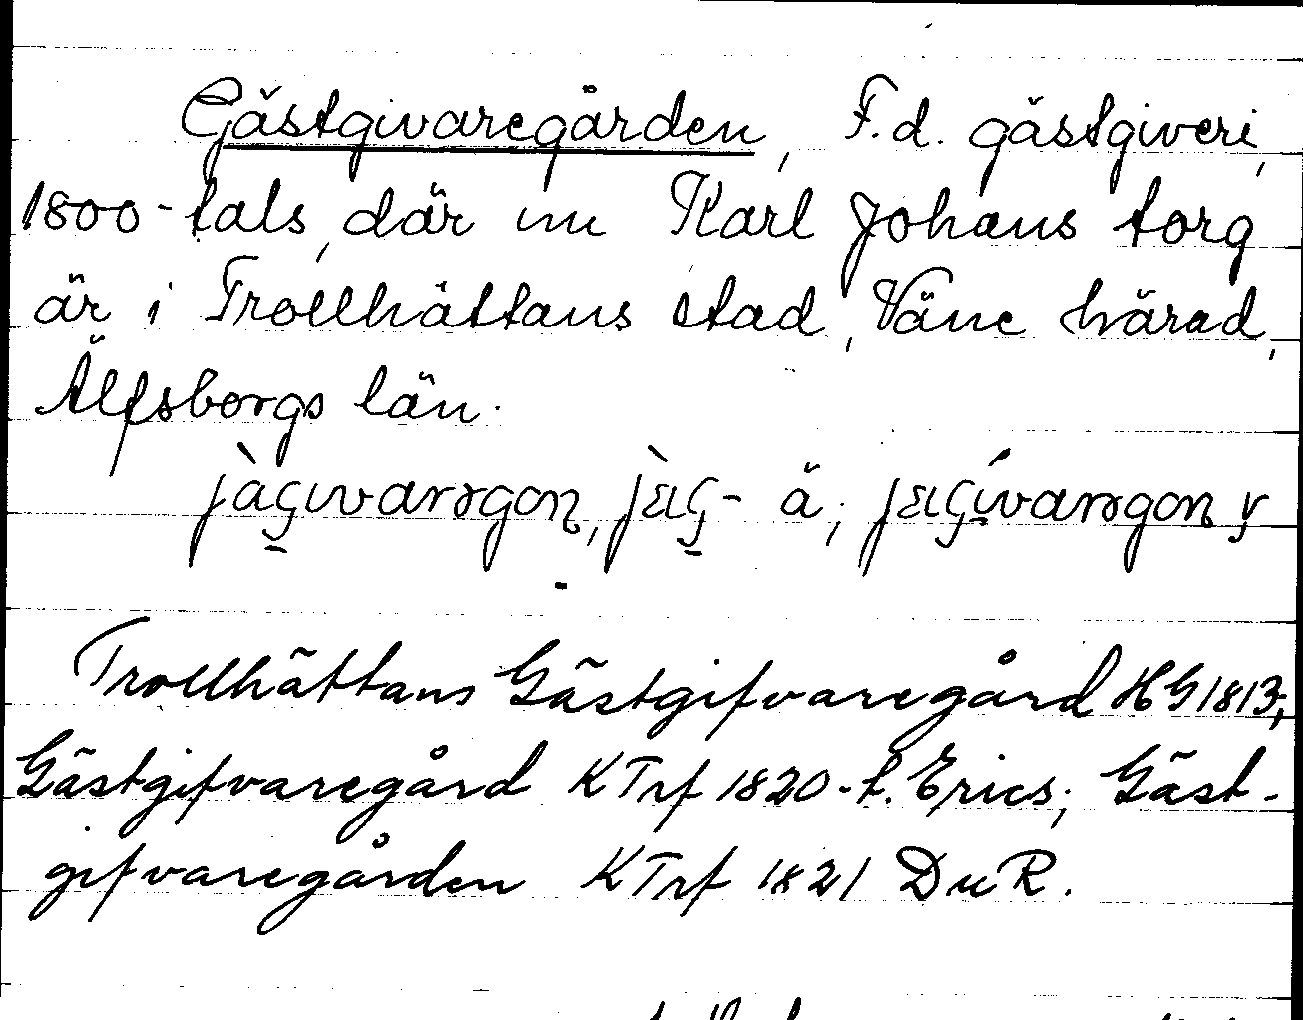 Gästgivaregården, F.d. gästgiveri,
1800-tals, där nu Karl Johans torg
är i Trollhättans stad, Väne härad,
Älfsborgs län.
Trollhättans Gästgifvaregård HG 1813;
Gästgifvaregård KTrf 1820-t. Erics; Gäst-
gifvaregården KTrf 1821 DuR.